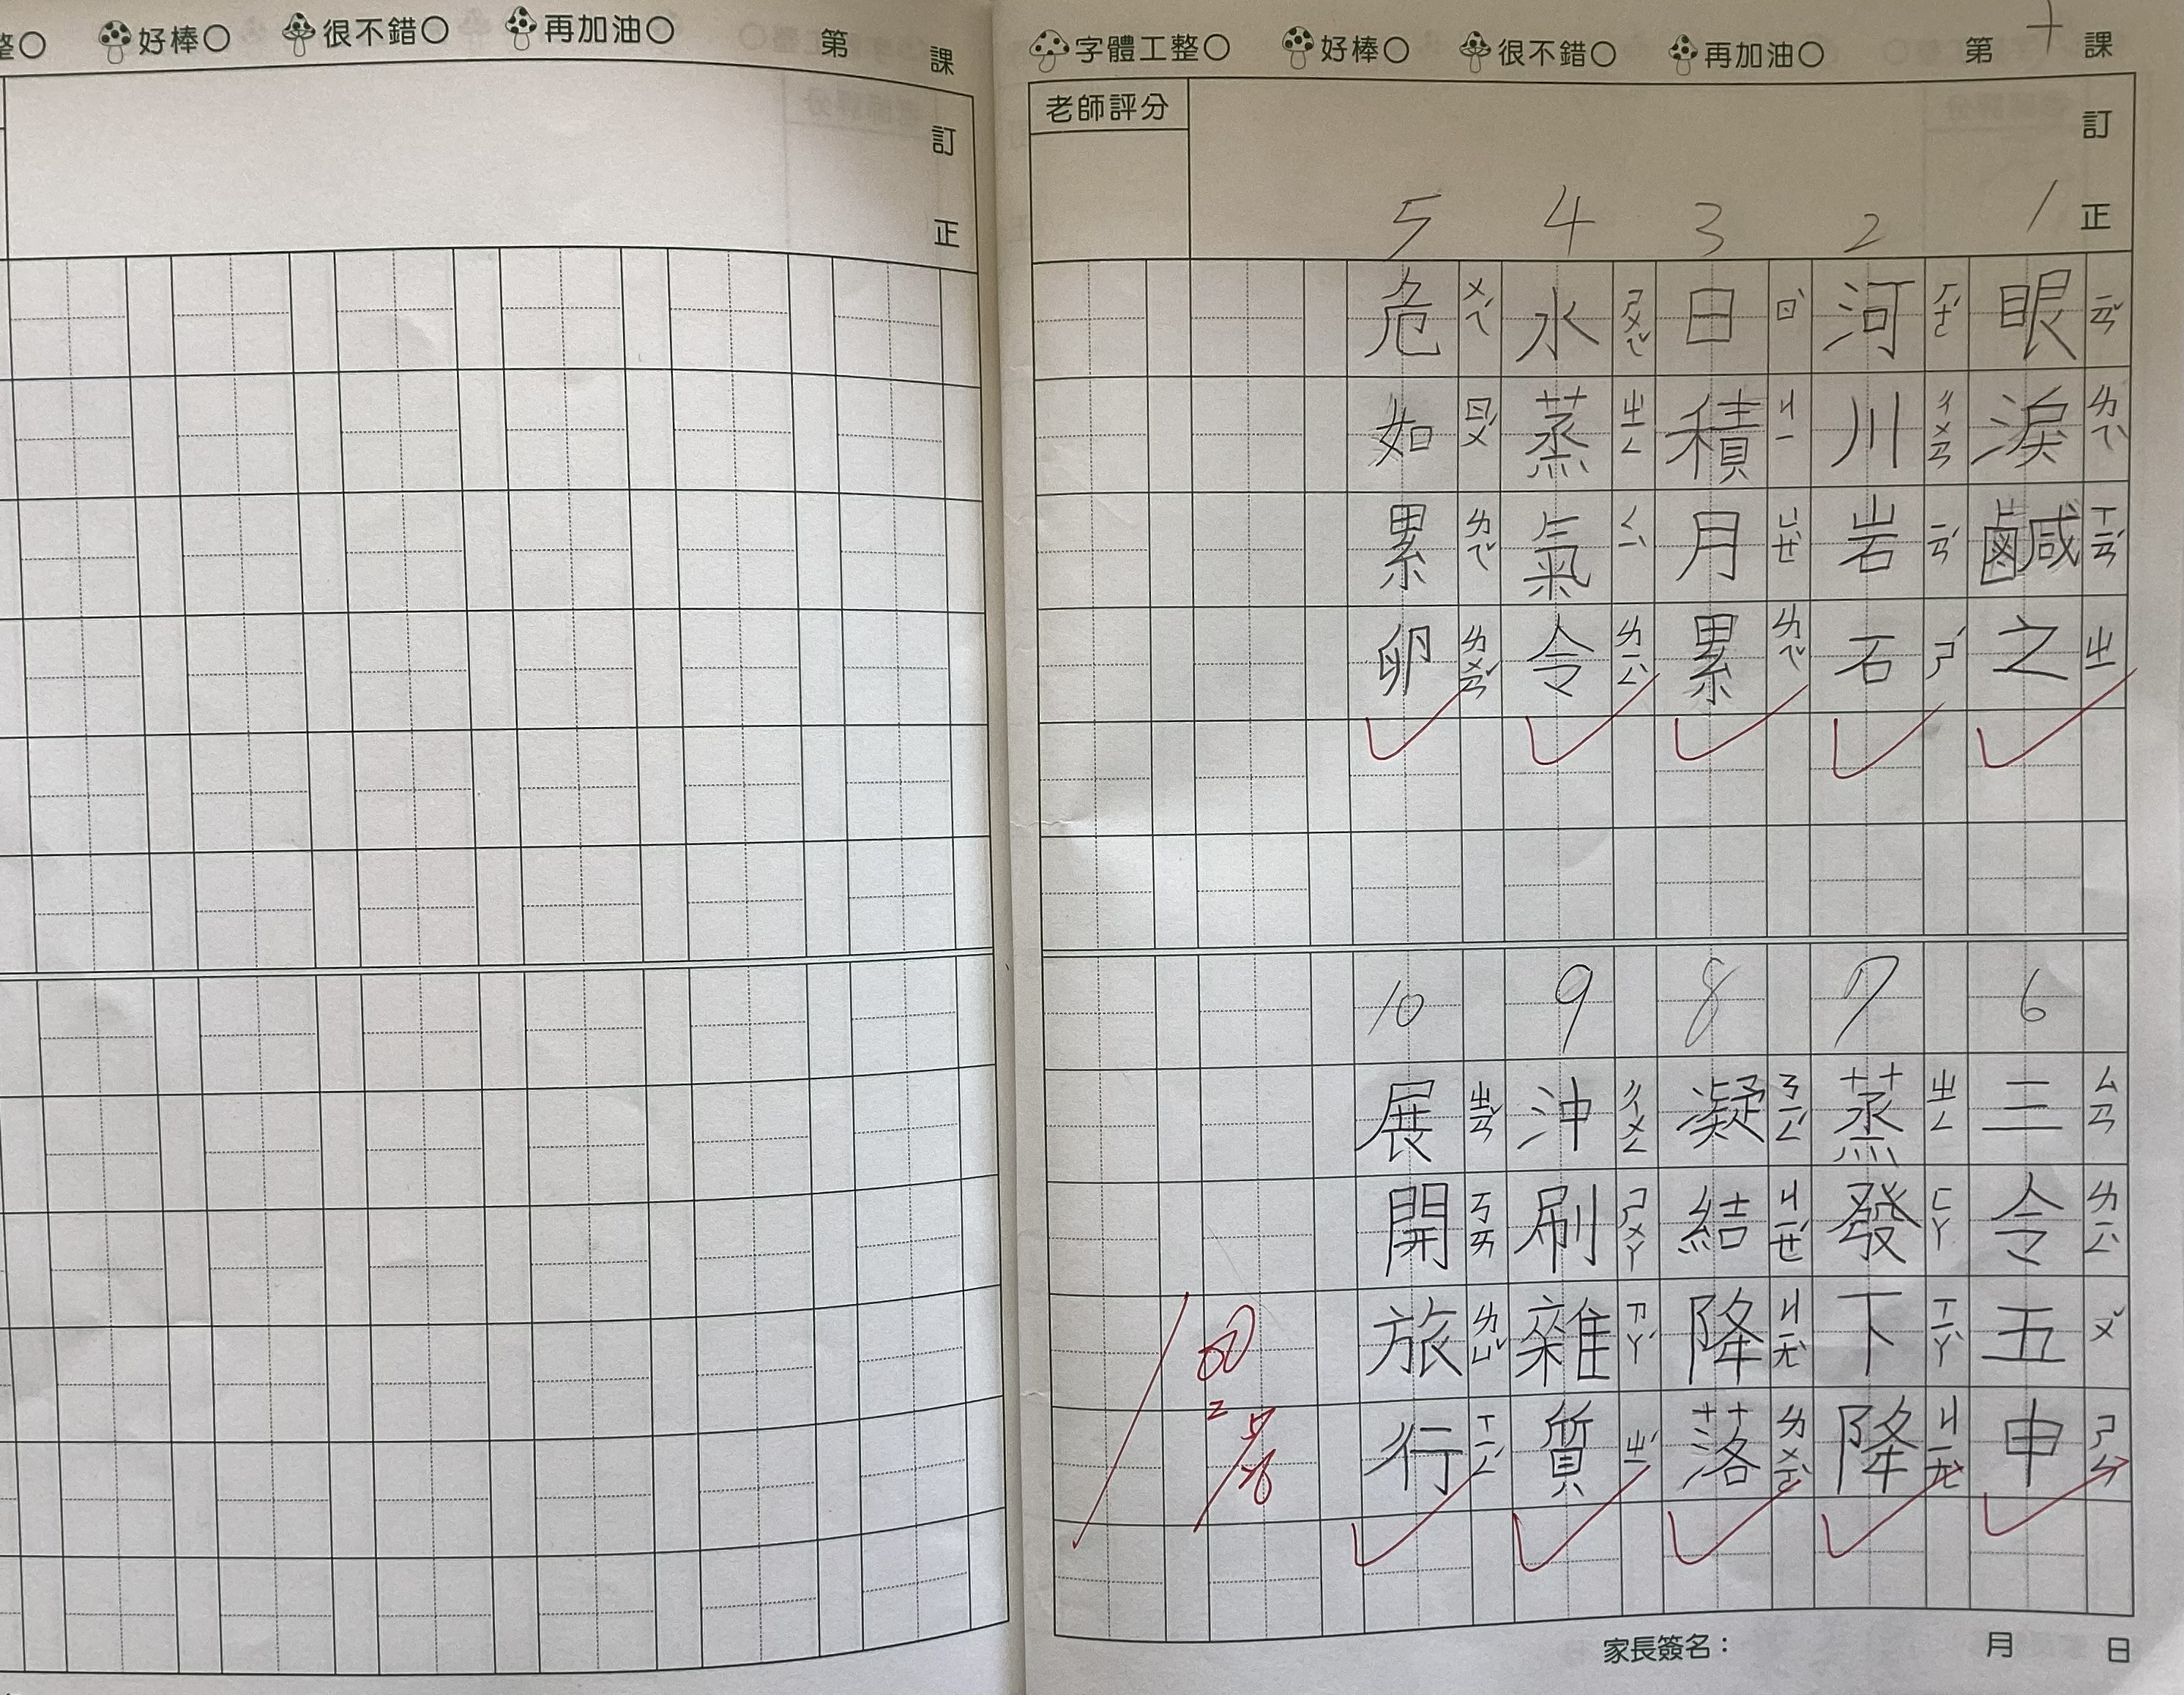 整○ 好棒○ 很不錯○ 再加油○ 第 課
訂正
字體工整○ 好棒○ 很不錯○ 再加油○ 第十課
老師評分
訂正
1
眼淚鹹之
ㄧㄢˇ ㄌㄟˋ ㄒㄧㄢˊ ㄓ
2
河川岩石
ㄏㄜˊ ㄔㄨㄢ ㄧㄢˊ ㄕˊ
3
日積月累
ㄖˋ ㄐㄧ ㄩㄝˋ ㄌㄟˇ
4
水蒸氣令
ㄕㄨㄟˇ ㄓㄥ ㄑㄧˋ ㄌㄧㄥˋ
5
危如累卵
ㄨㄟˊ ㄖㄨˊ ㄌㄟˇ ㄌㄨㄢˇ
6
三令五申
ㄙㄢ ㄌㄧㄥˋ ㄨˇ ㄕㄣ
7
蒸發下降
ㄓㄥ ㄈㄚ ㄒㄧㄚˋ ㄐㄧㄤˋ
8
凝結降落
ㄋㄧㄥˊ ㄐㄧㄝˊ ㄐㄧㄤˋ ㄌㄨㄛˋ
9
沖刷雜質
ㄔㄨㄥ ㄕㄨㄚ ㄗㄚˊ ㄓˊ
10
展開旅行
ㄓㄢˇ ㄎㄞ ㄌㄩˇ ㄒㄧㄥˊ
100
家長簽名： 月 日